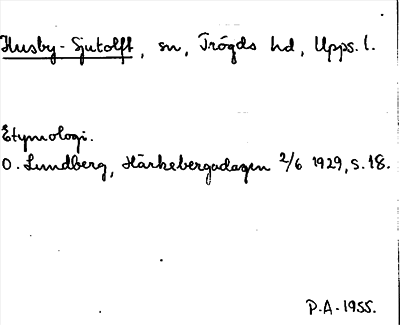 Husby-Sjutolft, sn, Trögds hd, Upps. l.
Etymologi.
O. Lundberg, Härkebergadagen 2/6 1929, s. 18.
P.A. 1955.